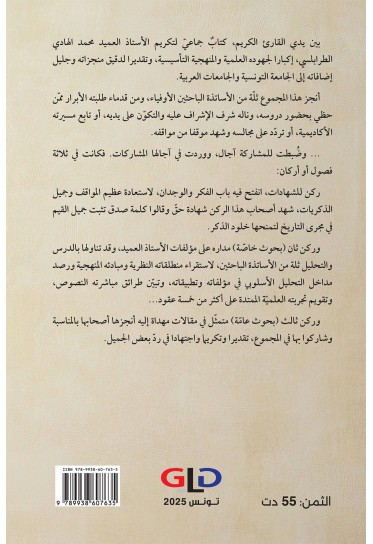 بين يدي القارئ الكريم، كتابٌ جماعيّ لتكريم الأستاذ العميد محمد الهادي
الطرابلسي، إكبارا لجهوده العلمية والمنهجية التأسيسية، وتقديرا لدقيق منجزاته وجليل
إضافاته إلى الجامعة التونسية والجامعات العربية.
أنجز هذا المجموع ثلّة من الأساتذة الباحثين الأوفياء، ومن قدماء طلبته الأبرار ممّن
حظي بحضور دروسه، وناله شرف الإشراف عليه والتكوّن على يديه، أو تابع مسيرته
الأكاديمية، أو تردّد على مجالسه وشهد موقفا من مواقفه.
... وضُبطت للمشاركة آجال، ووردت في آجالها المشاركات. فكانت في ثلاثة
فصول أو أركان:
ركن للشهادات، انفتح فيه باب الفكر والوجدان، لاستعادة عظيم المواقف وجميل
الذكريات، شهد أصحاب هذا الركن شهادة حقّ وقالوا كلمة صدق تثبت جميل القيم
في مجرى التاريخ لتمنحها خلود الذكر.
وركن ثان (بحوث خاصّة) مداره على مؤلفات الأستاذ العميد، وقد تناولها بالدرس
والتحليل ثلة من الأساتذة الباحثين، لاستقراء منطلقاته النظرية ومبادئه المنهجية ورصد
مداخل التحليل الأسلوبي في مؤلفاته وتطبيقاته، وتبيّن طرائق مباشرته النصوص،
وتقويم تجربته العلميّة الممتدة على أكثر من خمسة عقود...
وركن ثالث (بحوث عامّة) متمثّل في مقالات مهداة إليه أنجزها أصحابها بالمناسبة
وشاركوا بها في المجموع، تقديرا وتكريما واجتهادا في ردّ بعض الجميل.
ISBN 978-9938-60-763-5
9 789938 607635
GLD
تونس 2025
الثمن: 55 دت